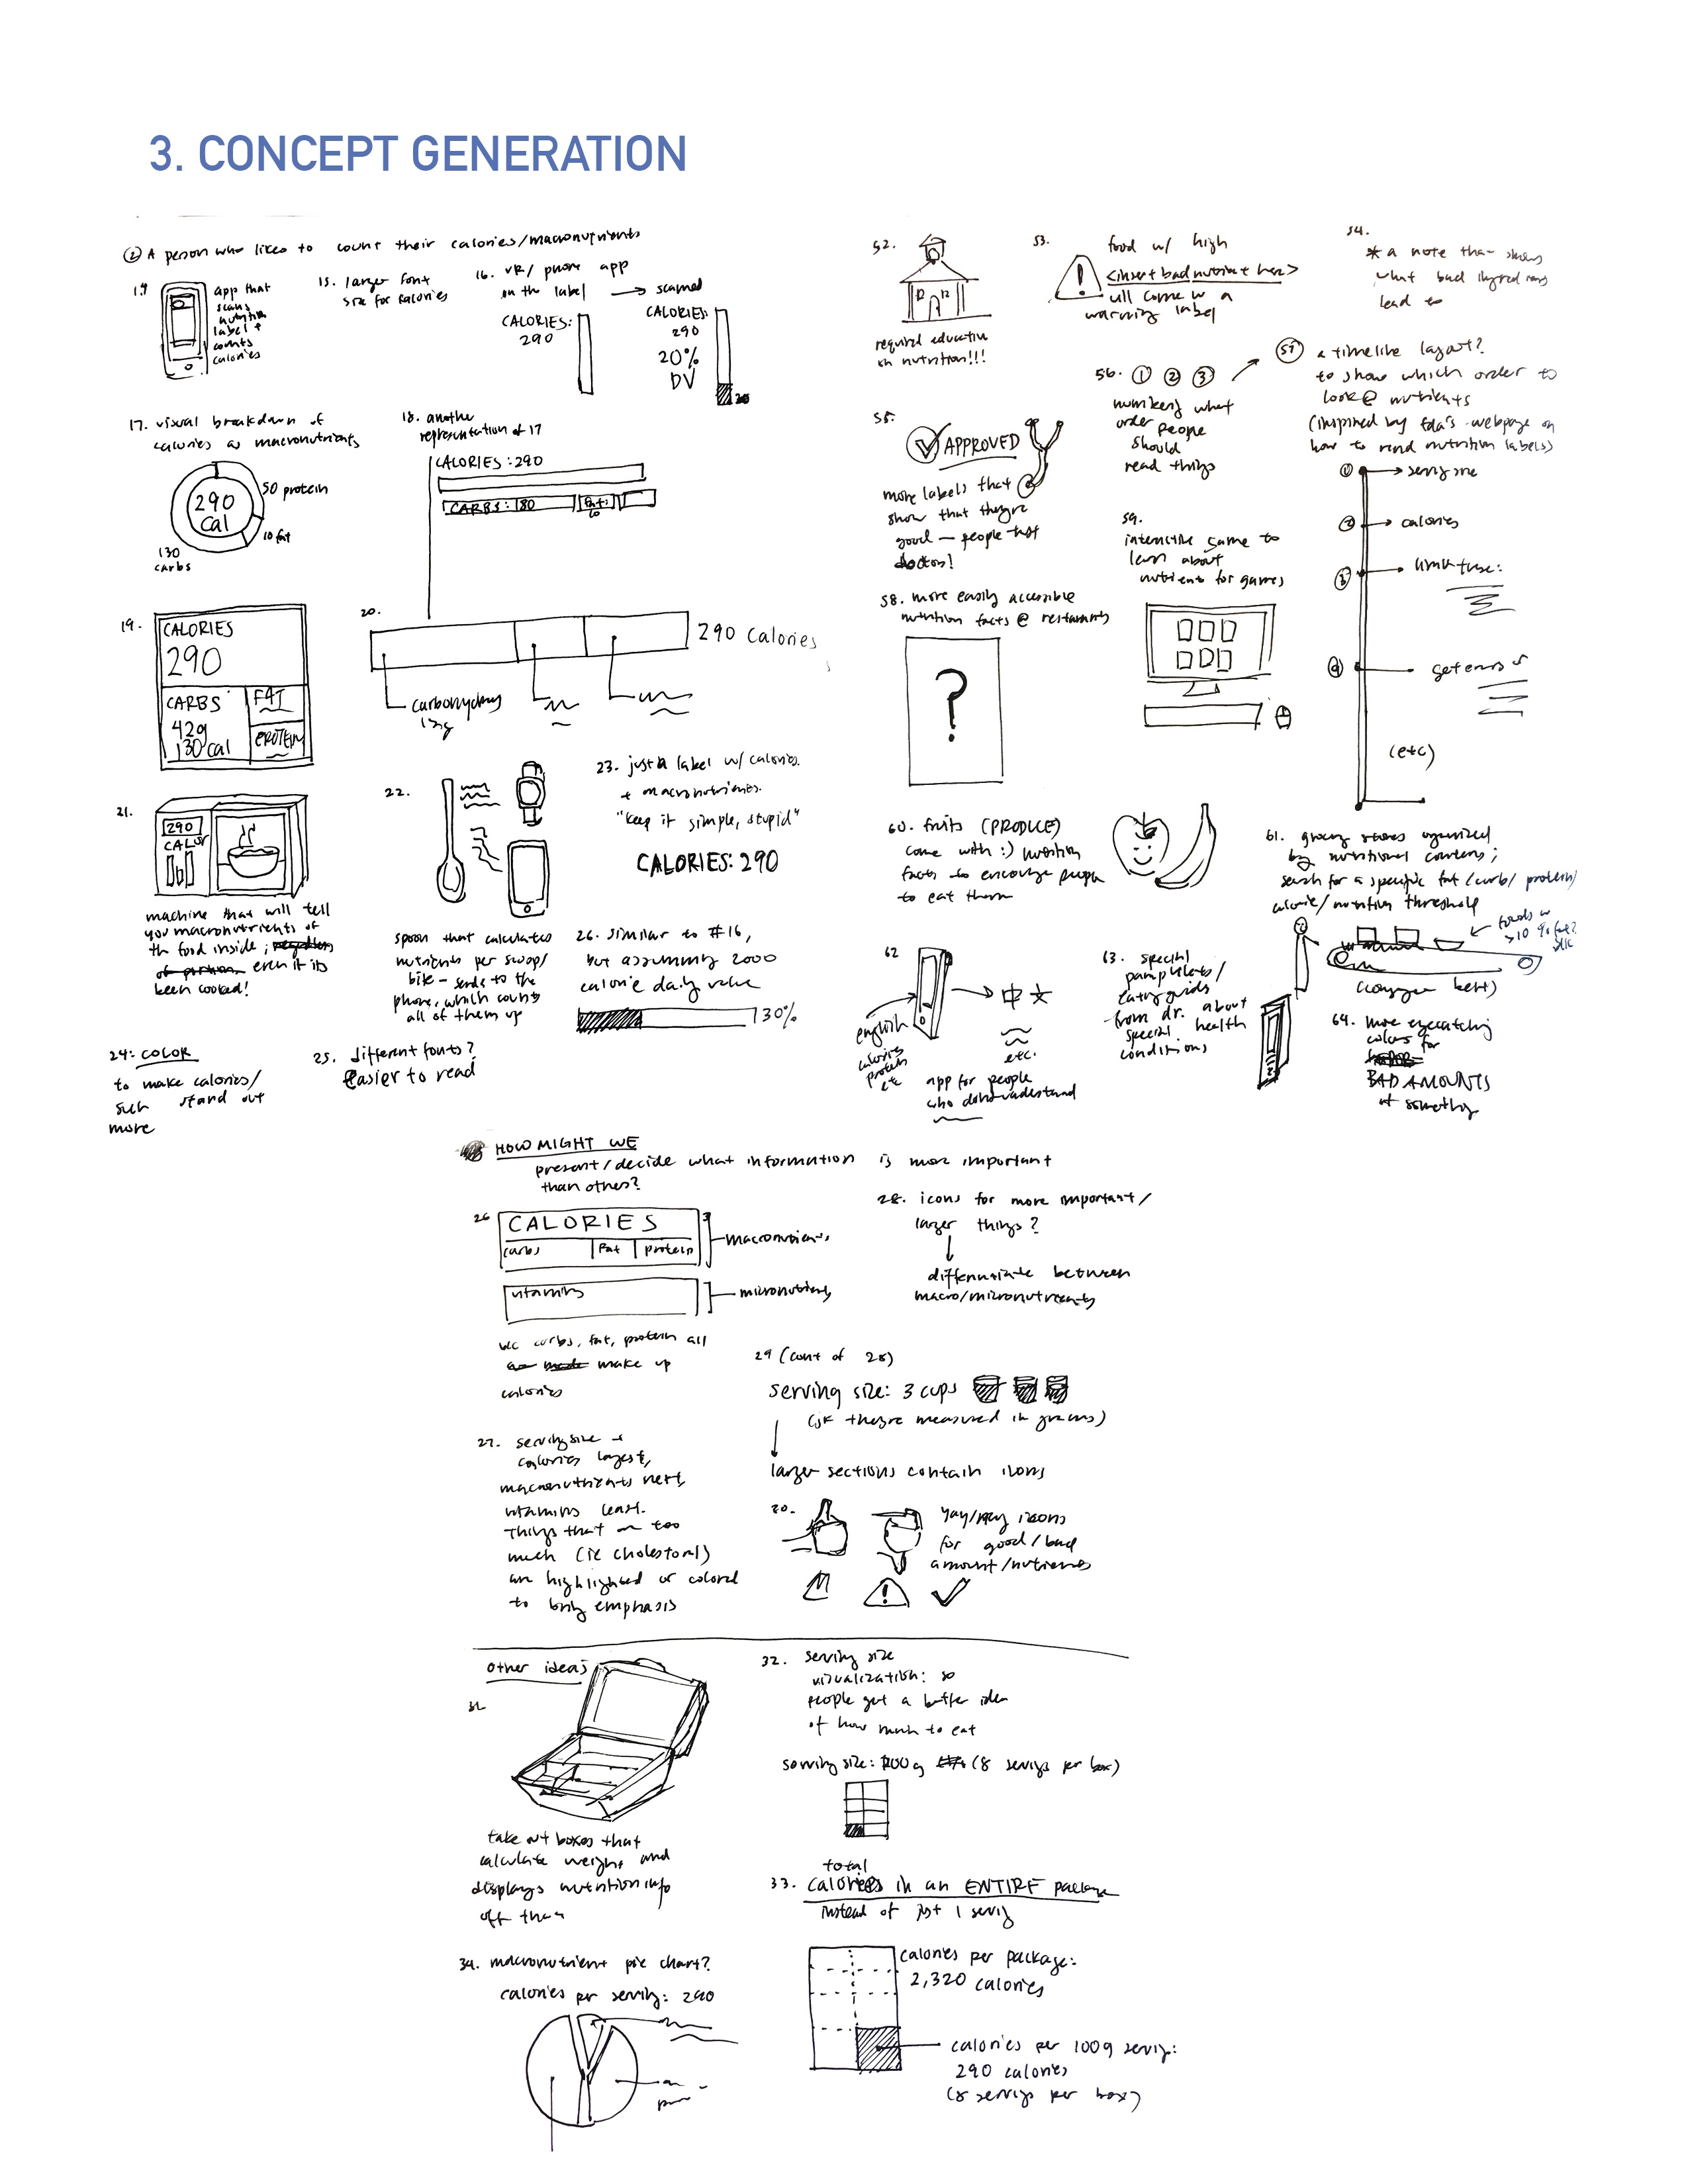 3. CONCEPT GENERATION
② A person who likes to count their calories/macronutrients
14.
app that
scans
nutrition
label +
counts
calories
15. larger font
size for calories
16. VR/ phone app
on the label → scanned
CALORIES:
290
CALORIES:
290
20%
DV
17. visual breakdown of
calories as macronutrients
290
Cal
50 protein
10 fat
130
carbs
18. another
representation of 17
CALORIES: 290
CARBS: 80
19.
CALORIES
290
CARBS
42g
130 cal
FAT
PROTEIN
20.
290 Calories
carbohydrates
21.
290
CALOR
machine that will tell
you macronutrients of
the food inside; even if its
been cooked!
22.
spoon that calculates
nutrients per swoop/
bite - sends to the
phone, which counts
all of them up
23. just a label w/ calories
+ macronutrients.
"keep it simple, stupid"
CALORIES: 290
26. similar to #16,
but assuming 2000
calorie daily value
130%
24: COLOR
to make calories/
such stand out
more
25. different fonts?
Easier to read
52.
required education
on nutrition!!!
53.
food w/ high
<insert bad nutrient here>
will come w a
warning label
54.
* a note that shows
what bad ingredients
lead to
55.
APPROVED
more labels that
show that they're
good — people trust
doctors!
56. ① ② ③
numbers what
order people
should
read things
57 a timeline layout?
to show which order to
look @ nutrients
(inspired by fda's webpage on
how to read nutrition labels)
① → serving size
② → calories
③ limit these:
④ get enough
(etc)
58. more easily accessible
nutrition facts @ restaurants
?
59.
interactive game to
learn about
nutrients for games
60. fruits (PRODUCE)
come with :) nutrition
facts to encourage people
to eat them
61. grocery stores organized
by nutritional contents;
search for a specific fat (carb/ protein/
calorie/nutrition threshold
foods w
>10 % fat?
(conveyer belt)
62
english
calories
protein
etc
中文
etc.
app for people
who don't understand
63. special
pamphlets/
eating guides
from dr. about
special health
conditions
64. more eyecatching
colors for
BAD AMOUNTS
of something
HOW MIGHT WE
present/decide what information is more important
than others?
26
CALORIES
carbs fat protein
macronutrients
vitamins
micronutrients
b/c carbs, fat, protein all
make up
calories
27. serving size +
calories largest,
macronutrients next,
vitamins least.
Things that are too
much (ie cholesterol)
are highlighted or colored
to bring emphasis
28. icons for more important/
larger things?
differentiate between
macro/micronutrients
29 (cont of 28)
serving size: 3 cups
(jk they're measured in grams)
larger sections contain icons
30.
yay/nay icons
for good/bad
amount/nutrients
other ideas
31.
take out boxes that
calculate weight and
displays nutrition info
off that
32. serving size
visualization: so
people get a better idea
of how much to eat
serving size: 100g (8 servings per box)
33. total
calories in an ENTIRE package
instead of just 1 serving
calories per package:
2,320 calories
calories per 100g serving:
290 calories
(8 servings per box)
34. macronutrient pie chart?
calories per serving: 290